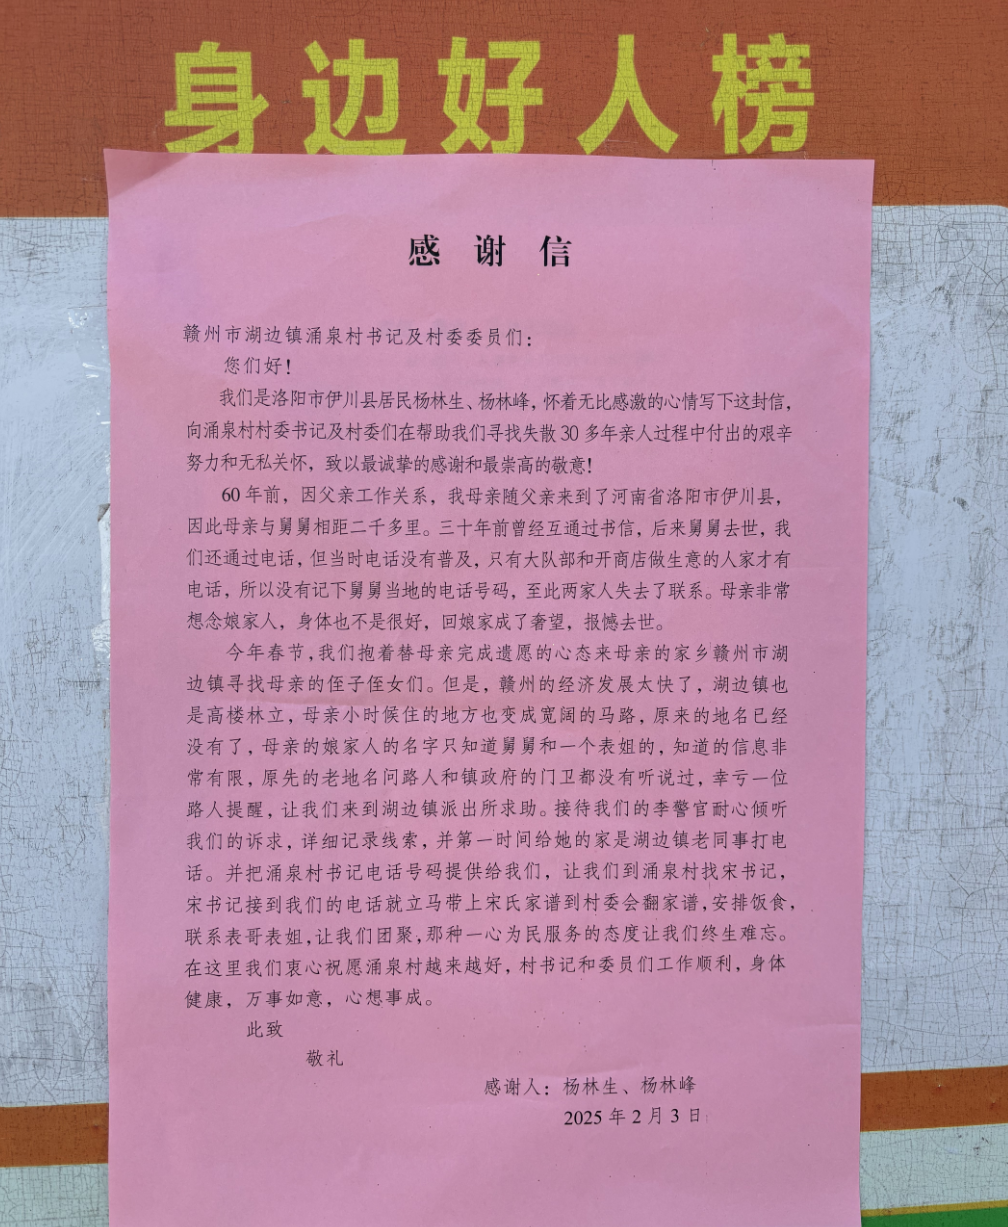 身边好人榜
感谢信
赣州市湖边镇涌泉村书记及村委委员们：
您们好！
我们是洛阳市伊川县居民杨林生、杨林峰，怀着无比感激的心情写下这封信，
向涌泉村村委书记及村委们在帮助我们寻找失散30多年亲人过程中付出的艰辛
努力和无私关怀，致以最诚挚的感谢和最崇高的敬意！
60年前，因父亲工作关系，我母亲随父亲来到了河南省洛阳市伊川县，
因此母亲与舅舅相距二千多里。三十年前曾经互通过书信，后来舅舅去世，我
们还通过电话，但当时电话没有普及，只有大队部和开商店做生意的人家才有
电话，所以没有记下舅舅当地的电话号码，至此两家人失去了联系。母亲非常
想念娘家人，身体也不是很好，回娘家成了奢望，报憾去世。
今年春节，我们抱着替母亲完成遗愿的心态来母亲的家乡赣州市湖
边镇寻找母亲的侄子侄女们。但是，赣州的经济发展太快了，湖边镇也
是高楼林立，母亲小时候住的地方也变成宽阔的马路，原来的地名已经
没有了，母亲的娘家人的名字只知道舅舅和一个表姐的，知道的信息非
常有限，原先的老地名问路人和镇政府的门卫都没有听说过，幸亏一位
路人提醒，让我们来到湖边镇派出所求助。接待我们的李警官耐心倾听
我们的诉求，详细记录线索，并第一时间给她的家是湖边镇老同事打电
话。并把涌泉村书记电话号码提供给我们，让我们到涌泉村找宋书记，
宋书记接到我们的电话就立马带上宋氏家谱到村委会翻家谱，安排饭食，
联系表哥表姐，让我们团聚，那种一心为民服务的态度让我们终生难忘。
在这里我们衷心祝愿涌泉村越来越好，村书记和委员们工作顺利，身体
健康，万事如意，心想事成。
此致
敬礼
感谢人：杨林生、杨林峰
2025年2月3日